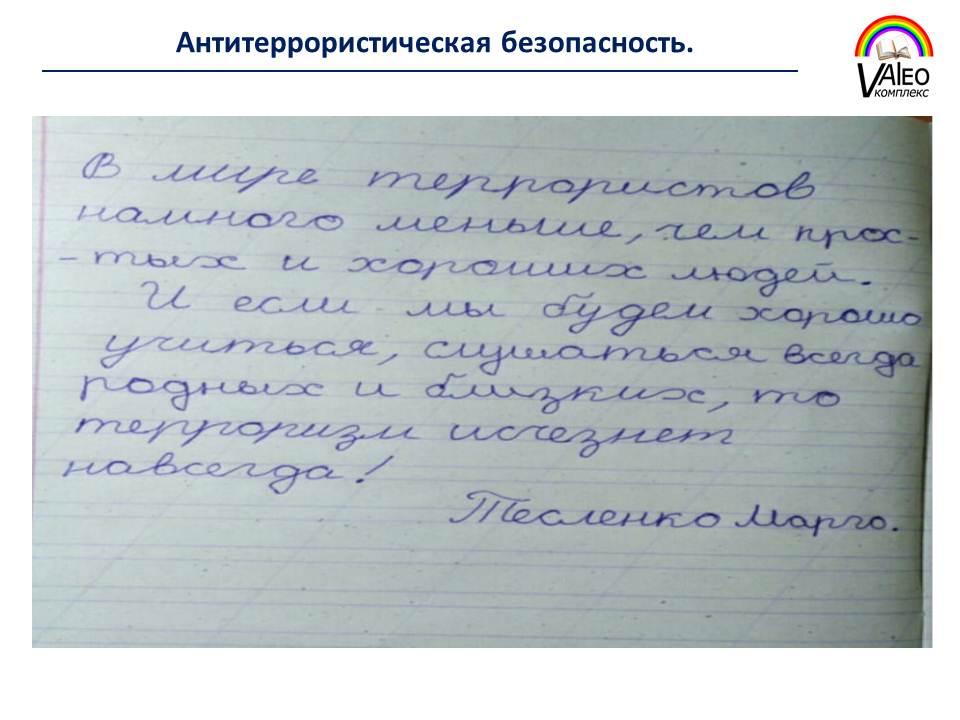 Антитеррористическая безопасность.
VAlEO
комплекс
В мире террористов
намного меньше, чем прос-
-тых и хороших людей.
И если мы будем хорошо
учиться, слушаться всегда
родных и близких, то
терроризм исчезнет
навсегда!
Тесленко Марго.